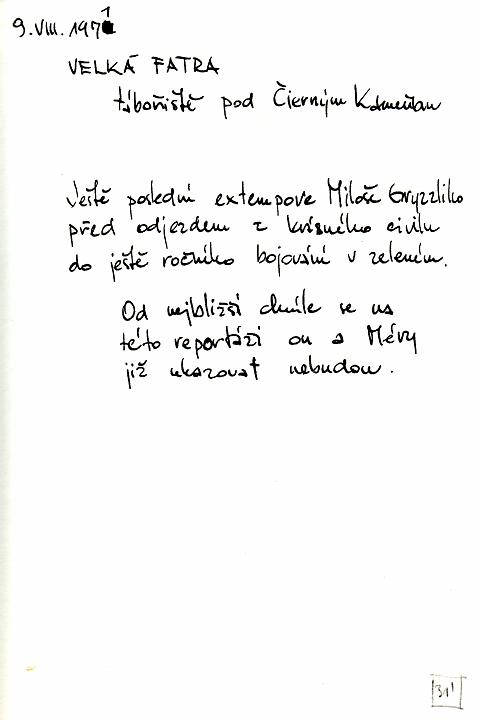 9. VIII. 1971
VELKÁ FATRA
tábořiště pod Čierným Kameňam
Ještě poslední extempore Miloše Gryzzliho
před odjezdem z krásného civilu
do ještě ročního bojování v zeleném.
Od nejbližší chvíle se na
této reportáži on a Mévy
již ukazovat nebudou.
31'